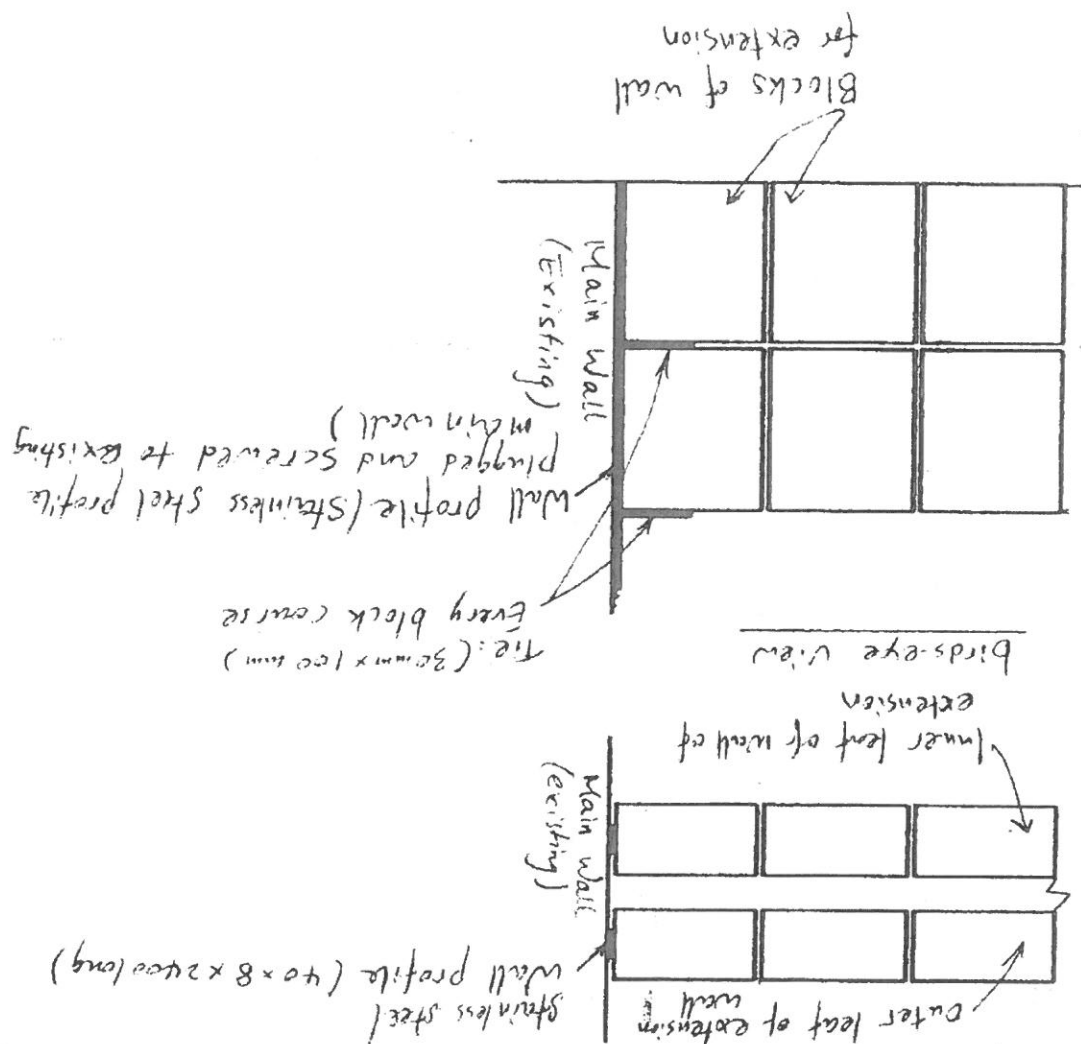 Outer leaf of extension
wall
Stainless steel
wall profile (40 × 8 × 2400 long)
Main Wall
(existing)
Inner leaf of wall of
extension
birds-eye view
Tie: (30mm × 100 mm)
Every block course
Wall profile (Stainless steel profile
plugged and screwed to existing
main wall)
Main Wall
(Existing)
Blocks of wall
for extension